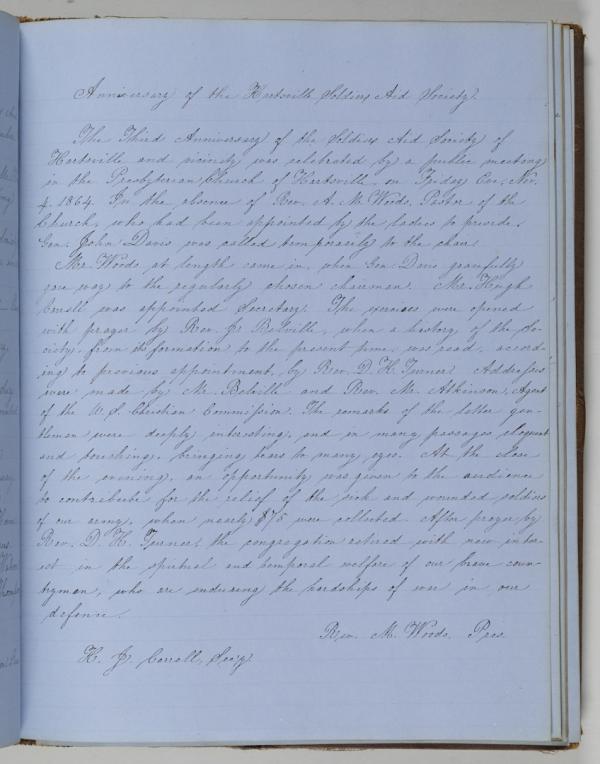 Anniversary of the Hartsville Soldiers Aid Society.
The Third Anniversary of the Soldiers Aid Society of
Hartsville and vicinity was celebrated by a public meeting
in the Presbyterian Church of Hartsville on Friday Eve, Nov.
4. 1864. In the absence of Rev. A. M. Woods, Pastor of the
Church, who had been appointed by the ladies to preside.
Gen. John Davis was called temporarily to the chair.
Mr. Woods at length came in, when Gen Davis gracefully
gave way to the regularly chosen chairman. Mr. Hugh
Carroll was appointed Secretary. The exercises were opened
with prayer by Rev. J. Belville, when a history of the So-
ciety, from its formation to the present time, was read, accord-
ing to previous appointment, by Rev. D. H. Turner. Addresses
were made by Mr. Belville and Rev. Mr. Atkinson, Agent
of the U. S. Christian Commission. The remarks of the latter gen-
tleman were deeply interesting, and in many passages eloquent
and touching, bringing tears to many eyes. At the close
of the evening, an opportunity was given to the audience
to contribute for the relief of the sick and wounded soldiers
of our army, when nearly $75 were collected. After prayer by
Rev. D. H. Turner, the congregation retired with new inter-
est in the spiritual and temporal welfare of our brave coun-
trymen, who are enduring the hardships of war in our
defence.
Rev. M. Woods. Pres.
H. J. Carroll, Sec'y.